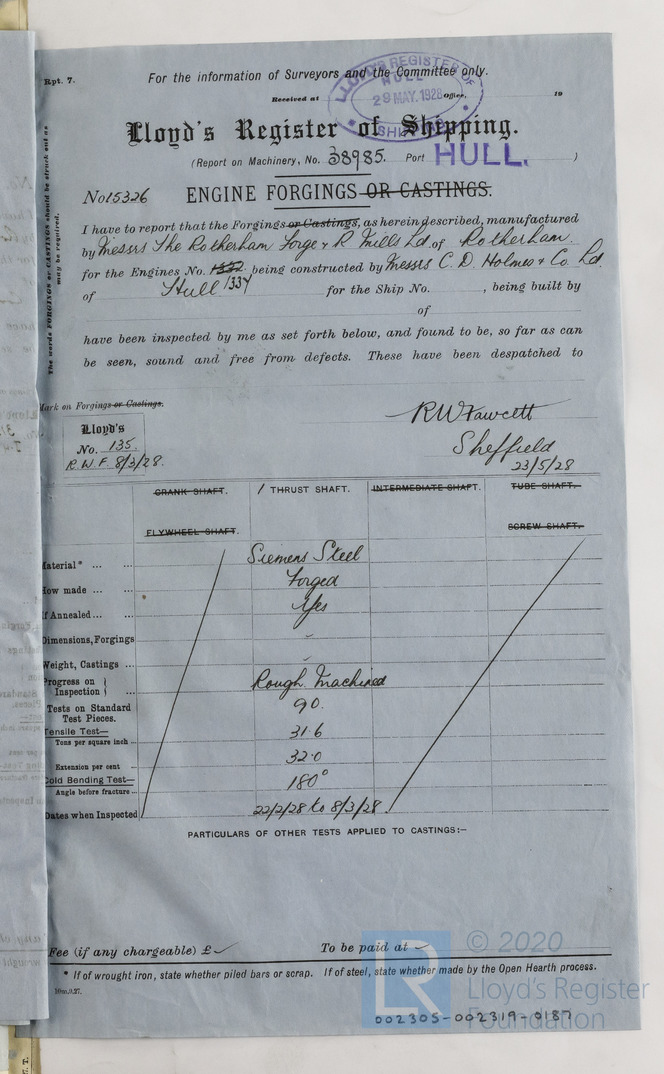 Rpt. 7.
For the information of Surveyors and the Committee only.
Received at Office, 19
LLOYD'S REGISTER OF SHIPPING
HULL
29 MAY. 1928
Lloyd's Register of Shipping.
(Report on Machinery, No. 38985. Port HULL. )
No 15326 ENGINE FORGINGS OR CASTINGS.
The words FORGINGS or CASTINGS should be struck out as
may be required.
I have to report that the Forgings or Castings, as herein described, manufactured
by Messrs The Rotherham Forge & R. Mills Ld. of Rotherham.
for the Engines No. 1332 being constructed by Messrs C. D. Holmes & Co. Ld.
1337
of Hull for the Ship No. , being built by
of
have been inspected by me as set forth below, and found to be, so far as can
be seen, sound and free from defects. These have been despatched to
Mark on Forgings or Castings.
Lloyd's
No. 135.
R.W.F. 8/3/28.
R W Fawcett
Sheffield
23/5/28
CRANK SHAFT. 1 THRUST SHAFT. INTERMEDIATE SHAFT. TUBE SHAFT.
FLYWHEEL SHAFT. SCREW SHAFT.
Material* ... ... Siemens Steel
How made ... ... Forged
If Annealed ... ... Yes
Dimensions, Forgings -
Weight, Castings ... -
Progress on Inspection ... Rough Machined
Tests on Standard Test Pieces. 90.
Tensile Test—
Tons per square inch ... 31.6
Extension per cent ... 32.0
Cold Bending Test—
Angle before fracture ... 180°
Dates when Inspected 22/2/28 to 8/3/28
PARTICULARS OF OTHER TESTS APPLIED TO CASTINGS:—
Fee (if any chargeable) £ To be paid at
* If of wrought iron, state whether piled bars or scrap. If of steel, state whether made by the Open Hearth process.
10m,9.27.
LR
© 2020
Lloyd's Register
Foundation
002305-002319-0187